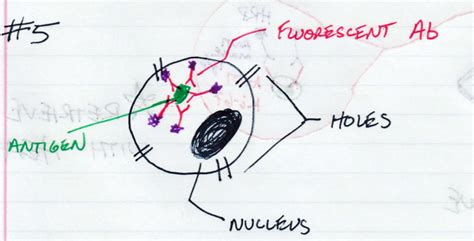 #5
FLUORESCENT Ab
ANTIGEN
HOLES
NUCLEUS